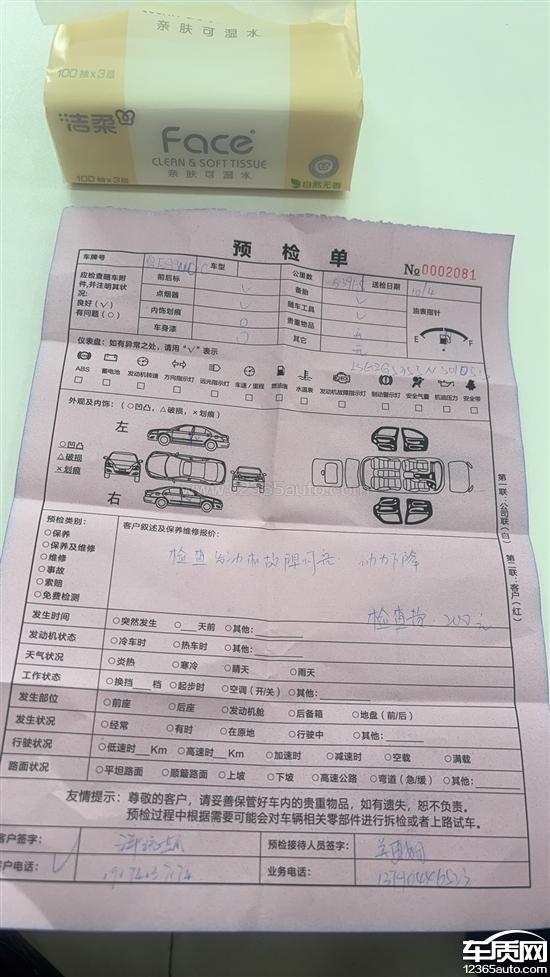 CLEAN & SOFT TISSUE
亲肤可湿水
100抽×3层
洁柔
Face
CLEAN & SOFT TISSUE
亲肤可湿水
100抽×3层
自然无香
预检单
№0002081
车牌号
车型
公里数
送检日期
10/4
应检查随车附件,并注明其状况:
良好(√)
有问题(○)
前后标
√
备胎
√
油表指针
点烟器
√
随车工具
√
内饰刮痕
√
贵重物品
车身漆
其它
E
F
仪表盘:如有异常之处,请用“√”表示
ABS
蓄电池
发动机转速
方向指示灯
远光指示灯
车速/里程
燃油表
水温表
发动机故障指示灯
制动警示灯
安全气囊
机油压力
安全带
外观及内饰:(○凹凸,△破损,×划痕)
左
○凹凸
△破损
×划痕
右
预检类别:
○保养
○保养及维修
○维修
○事故
○索赔
○免费检测
客户叙述及保养维修报价:
检查发动机故障灯亮 动力下降
检查费:200元
发生时间
○突然发生 ○___天前 ○其他:
发动机状态
○冷车时 ○热车时 ○其他:
天气状况
○炎热 ○寒冷 ○晴天 ○雨天
工作状态
○换挡___档 ○起步时 ○空调(开/关) ○其他:
发生部位
○前座 ○后座 ○发动机舱 ○后备箱 ○地盘(前/后)
发生状况
○经常 ○有时 ○在原地 ○行驶中 ○其他:
行驶状况
○低速时___Km ○高速时___Km ○加速时 ○减速时 ○空载 ○满载
路面状况
○平坦路面 ○颠簸路面 ○上坡 ○下坡 ○高速公路 ○弯道(急/缓) ○其他:
友情提示:尊敬的客户,请妥善保管好车内的贵重物品,如有遗失,恕不负责。
预检过程中根据需要可能会对车辆相关零部件进行拆检或者上路试车。
客户签字:
预检接待人员签字:
客户电话:
业务电话:
第一联:公司联(白) 第二联:客户(红)
www.12365auto.com
车质网
12365auto.com